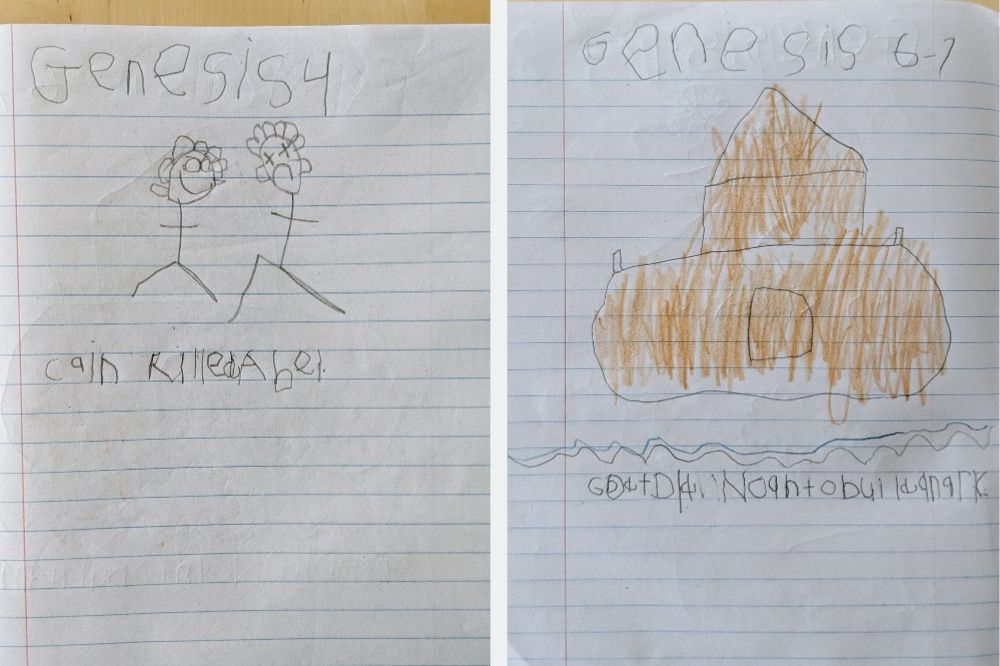 Genesis 4
cain KilledAbel
Genesis 6-7
Noahtobuildanark